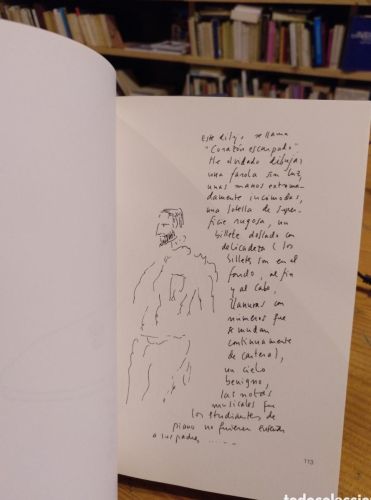 Este dibujo se llama
"Corazón escarpado".
He olvidado dibujar
una farola sin luz,
unas manos extrema-
damente incómodas,
una botella de super-
ficie rugosa, un
billete doblado con
delicadeza (los
billetes son en el
fondo, al fin
y al cabo,
llanuras con
números que
se mudan
continuamente
de cartera),
un cielo
benigno,
las notas
musicales que
los estudiantes de
piano no quieren
a sus padres ......
113
todocoleccion